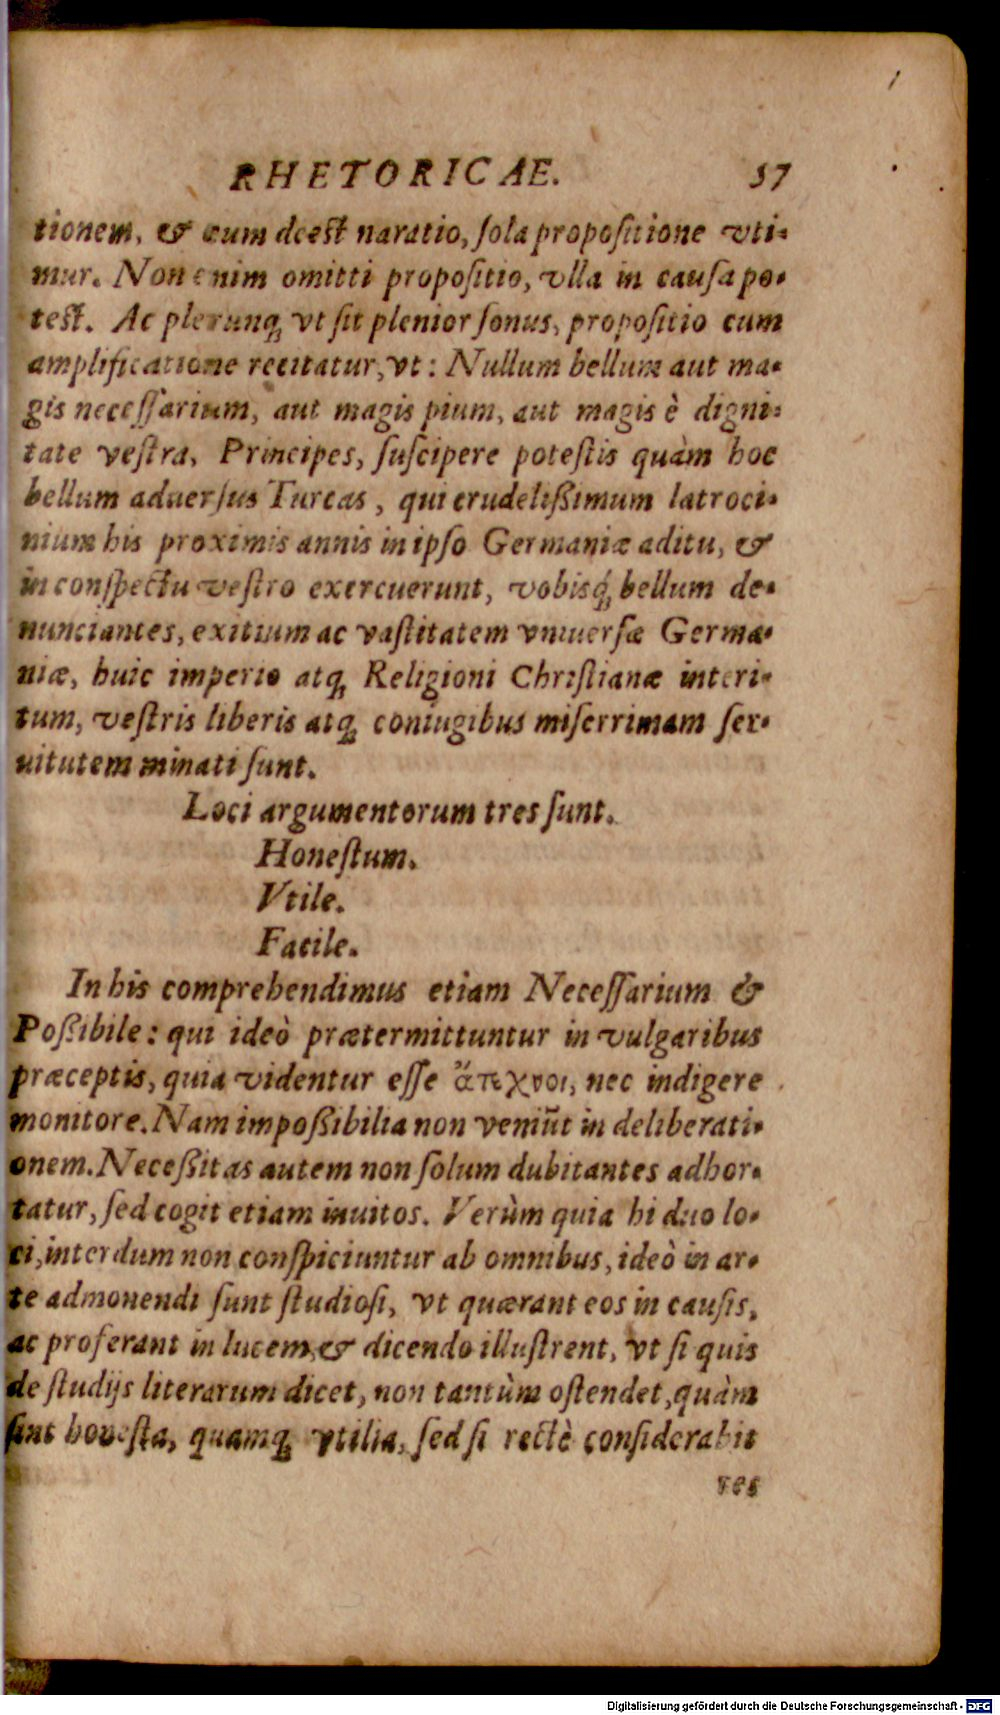 RHETORICAE. 57
tionem, & cum deest naratio, sola propositione vti-
mur. Non enim omitti propositio, vlla in causa po-
test. Ac plerunq; vt sit plenior sonus, propositio cum
amplificatione recitatur, vt: Nullum bellum aut ma-
gis necessarium, aut magis pium, aut magis è digni-
tate vestra, Principes, suscipere potestis quàm hoc
bellum aduersus Turcas, qui crudelißimum latroci-
nium his proximis annis in ipso Germaniæ aditu, &
in conspectu vestro exercuerunt, vobisq́; bellum de-
nunciantes, exitium ac vastitatem vniuersæ Germa-
niæ, huic imperio atq; Religioni Christianæ interi-
tum, vestris liberis atq; coniugibus miserrimam ser-
uitutem minati sunt.
Loci argumentorum tres sunt.
Honestum.
Vtile.
Facile.
In his comprehendimus etiam Necessarium &
Poßibile: qui ideò prætermittuntur in vulgaribus
præceptis, quia videntur esse ἄτεχνοι, nec indigere
monitore. Nam impoßibilia non veniũt in deliberati-
onem. Neceßitas autem non solum dubitantes adhor-
tatur, sed cogit etiam inuitos. Verùm quia hi duo lo-
ci, interdum non conspiciuntur ab omnibus, ideò in ar-
te admonendi sunt studiosi, vt quærant eos in causis,
ac proferant in lucem, & dicendo illustrent, vt si quis
de studijs literarum dicet, non tantùm ostendet, quàm
sint honesta, quamq; vtilia, sed si rectè considerabit
res
Digitalisierung gefördert durch die Deutsche Forschungsgemeinschaft - DFG